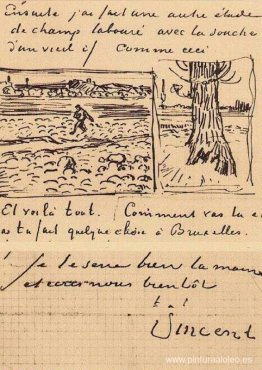 Ensuite j'ai fait une autre étude
de champs labouré avec la souche
d'un vieil if comme ceci
Et voilà tout. Comment vas tu et
as tu fait quelque chose à Bruxelles.
Je te serre bien la main
et écris nous bientôt
t. à
Vincent
www.pinturaaloleo.es